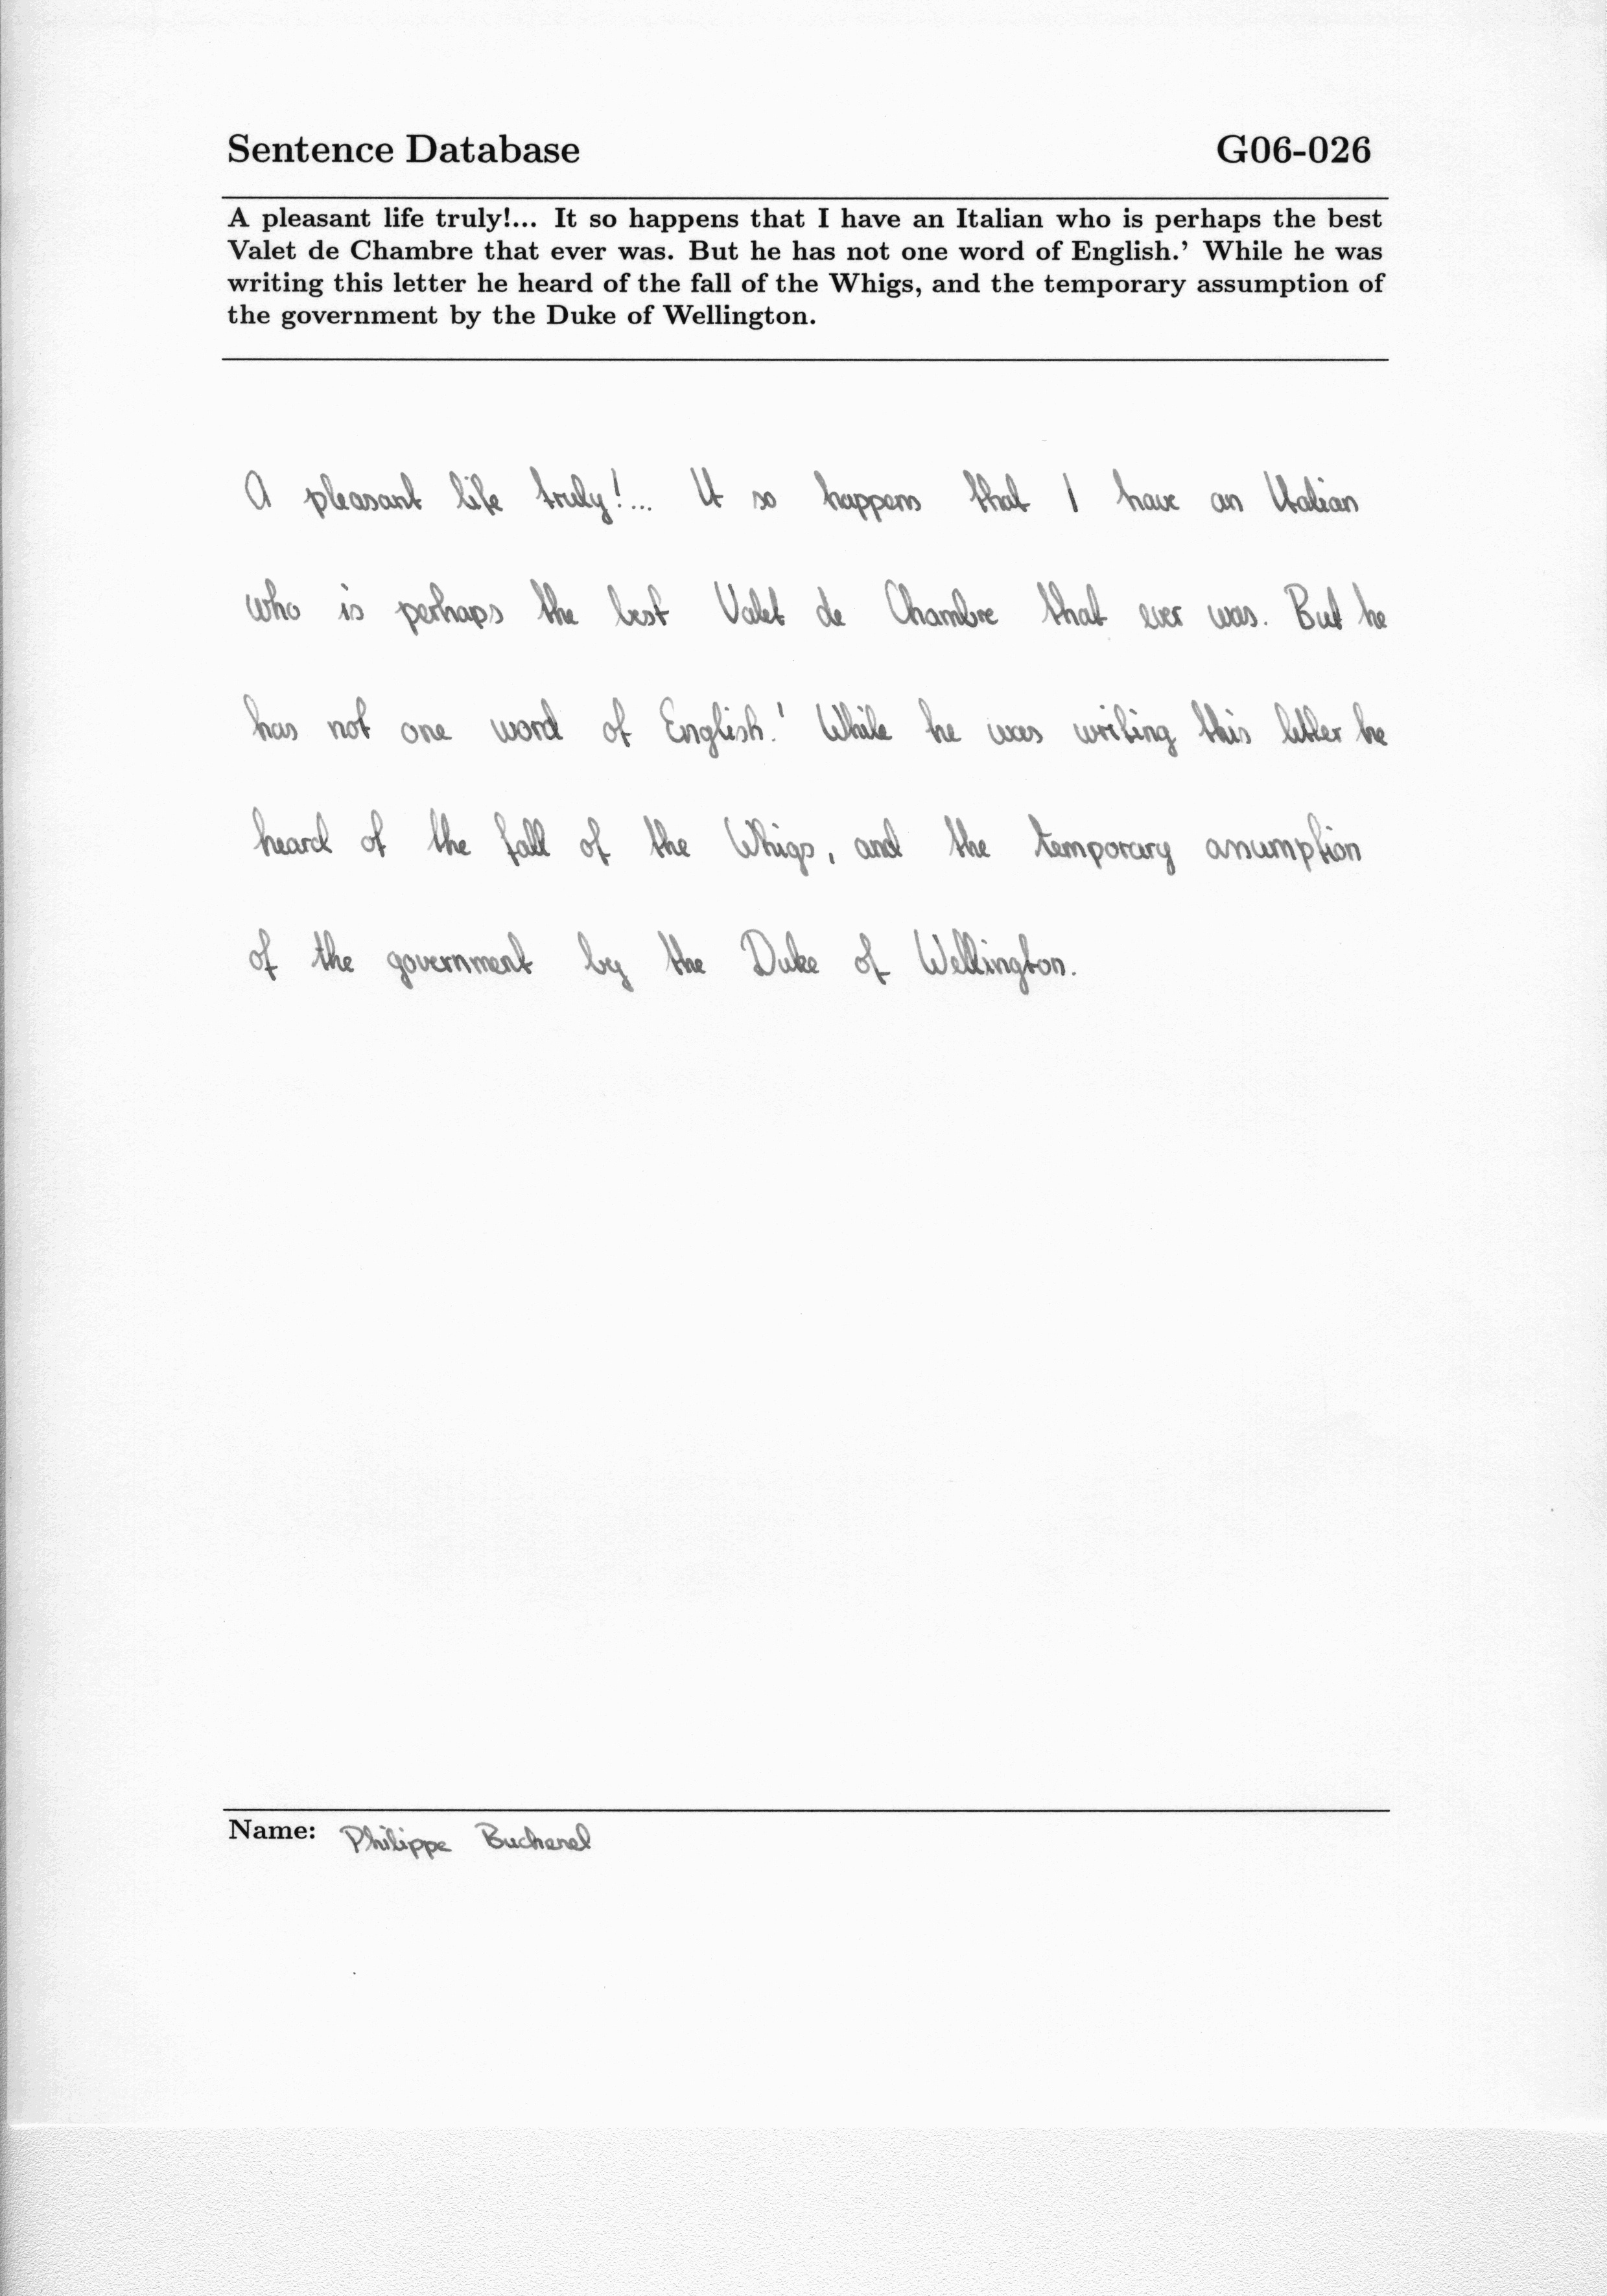 Sentence Database G06-026
A pleasant life truly!... It so happens that I have an Italian who is perhaps the best
Valet de Chambre that ever was. But he has not one word of English.' While he was
writing this letter he heard of the fall of the Whigs, and the temporary assumption of
the government by the Duke of Wellington.
A pleasant life truly!... It so happens that I have an Italian
who is perhaps the best Valet de Chambre that ever was. But he
has not one word of English.' While he was writing this letter he
heard of the fall of the Whigs, and the temporary assumption
of the government by the Duke of Wellington.
Name: Philippe Bucherel